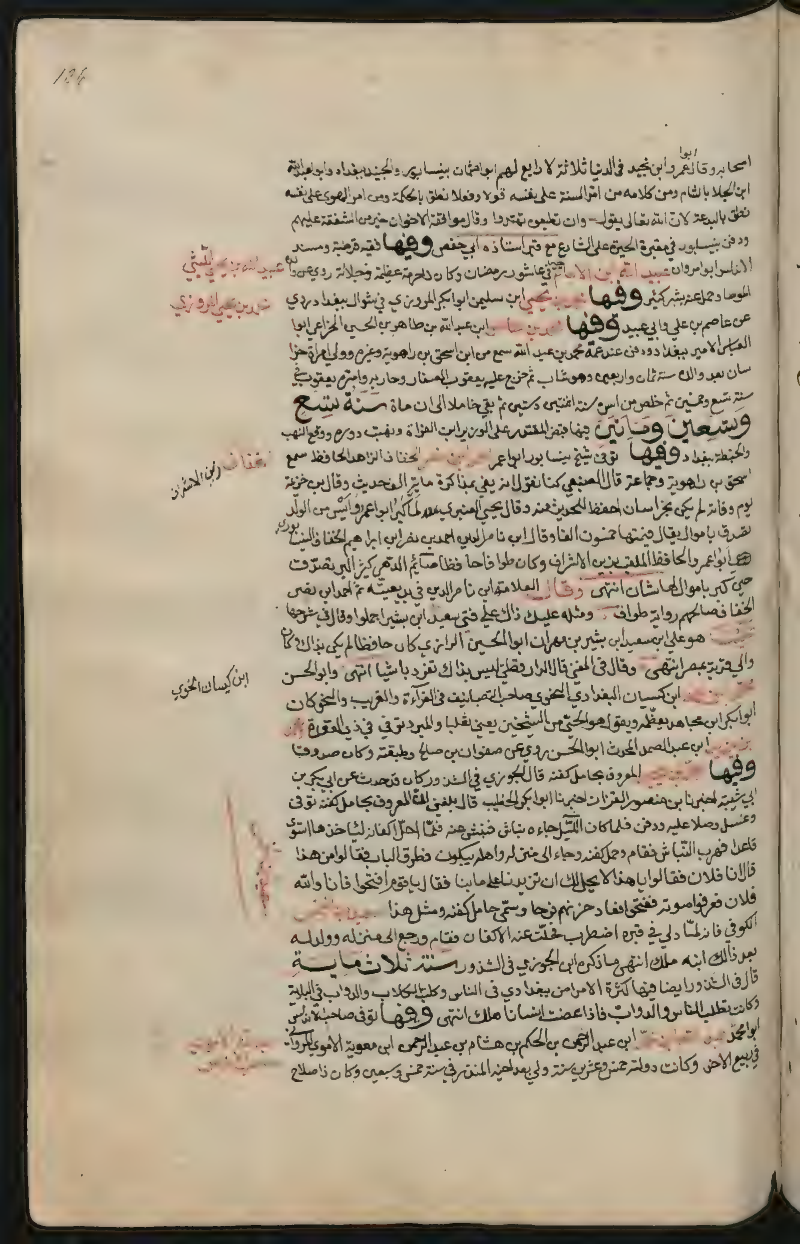 134
ابوا
اصحابه وقال عمرو ابن نجيد في الدنيا ثلاثة لا رابع لهم ابو عثمان بنيسابور والجنيد ببغداد وابو عبد الله
ابن الجلا بالشام ومن كلامه من امر السنة على نفسه قولا وفعلا نطق بالحكمة ومن امر الهوى على نفسه
نطق بالبدعة لان الله تعالى يقول وان تطيعوه تهتدوا وقال موافقة الاخوان خير من الشفقة عليهم
ودفن بنيسابور في مقبرة الحيرة على الشارع مع قبر استاذه ابي حفص وفيها فقيه قرطبة ومسند
الاندلس ابو مروان عبيد الله بن الامام يحيى في عاشور رمضان وكان ذا حرمة عظيمة وجلالة روى عن والده
عبيد الله بن يحيى الليثي
الموطا وحمل عنه بشر كثير وفيها محمد بن يحيى ابن سليمن ابو بكر المروزي في شوال ببغداد روى
محمد بن يحيى المروزي
عن عاصم بن علي وابي عبيد وفيها ابن عبد الله بن طاهر بن الحسين الخزاعي ابوا
العباس الامير ببغداد ودفن عند عمه محمد بن عبد الله سمع من اسحق بن راهوية وغيره وولي امرة خرا
سان بعد والده سنة ثمان واربعين وهو شاب ثم خرج عليه يعقوب الصفار وحاربه واسره يعقوب في
سنة تسع وخمسين ثم خلص من اسره سنة اثنتين وستين ثم بقي خاملا الى ان مات سنة تسع
وتسعين ومائتين فيها قبض المقتدر على الوزير ابن الفرات ونهبت دوره ووقع النهب
والخبطة ببغداد وفيها توفي شيخ نيسابور ابو عمر الخفاف الزاهد الحافظ سمع
الخفاف زين الاشراف
اسحق بن راهوية وجماعة قال الضبعي كنا نقول انه يفي بمذاكرة ماية الف حديث وقال بن خزيمة
يوم وفاته لم يكن بخراسان احفظ للحديث منه وقال يحيى العنبري لما كبر ابو عمر وايس من الولد
تصدق باموال يقال قيمتها خمسون الفا وقال ابن ناصر الدين احمد بن نصر ابن ابراهيم الخفاف النيسا
بوري
ابو عمرو الحافظ الملقب بزين الاشراف وكان طوافا حافظا صائم الدهر كثير البر تصدق
حين كبر باموال لها شان انتهى وقال العلامة ابن ناصر الدين في بديعيته ثم احمد ابن نصر
الخفاف صالحهم رواية طواف ومثله عليك ذاك علي فتى سعيد ابن بشير اجملوا وقال في شرحها
هو علي ابن سعيد ابن بشير بن مهران ابو الحسين الرازي كان حافظا لم يكن بذاك وكان
والي قرية بمصر انتهى وقال في المغني قال الدارقطني ليس بذاك تفرد باشيا انتهى وابو الحسن
محمد بن احمد ابن كيسان البغدادي النحوي صاحب التصانيف في القرآة والغريب والنحو كان
ابن كيسان النحوي
ابو بكر ابن مجاهد يعظمه ويقول هو انحى من الشيخين يعني ثعلبا والمبرد توفي في ذي القعدة محمد
بن يزيد ابن عبد الصمد المحدث ابو الحسن روى عن صفوان بن صالح وطبقته وكان صدوقا
وفيها محمد بن يحيى المعروف بحامل كفنه قال الجوزي في الشذور كان قد حدث عن ابي بكر بن
ابي شيبة اخبرنا ابن منصور القزاز اخبرنا ابو بكر الخطيب قال بلغني ان المعروف بحامل كفنه توفي
وغسل وصلا عليه ودفن فلما كان الليل جاءه نباش فنبش عنه فلما احل اكفانه لياخذها استوى
قاعدا فهرب النباش فقام وحمل كفنه وجاء الى منزله واهله يبكون فطرق الباب فقالوا من هذا
قال انا فلان فقالوا يا هذا لا يحل لك ان تزيدنا على ما بنا فقال يا قوم افتحوا فانا والله
فلان فعرفوا صوته ففتحوا فعاد حزنهم فرحا وسمي حامل كفنه ومثل هذا
الكوفي فانه لما دلي في قبره اضطرب فحلت عنه الاكفان فقام ورجع الى منزله وولد له
بعد ذالك ابنه ملك انتهى ما ذكره ابن الجوزي في الشذور سنة ثلاث ماية
قال في الشذور ايضا فيها كثرة الامراض ببغداد في الناس وكلبت الكلاب والذواب في البادية
وكانت تطلب الناس والدواب فاذا عضت انسانا هلك انتهى وفيها توفي صاحب الاندلس
ابو محمد ابن عبد الرحمن بن الحكم بن هشام بن عبد الرحمن ابن معوية الاموي المرواني
في ربيع الاخر وكانت دولته خمس وعشرين سنة ولي بعد اخيه المنذر في سنة خمس وسبعين وكان ذا صلاح